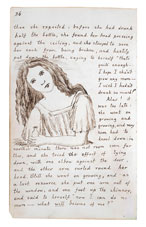 36
than she expected: before she had drunk
half the bottle, she found her head pressing
against the ceiling, and she stooped to save
her neck from being broken, and hastily
put down the bottle, saying to herself "that's
quite enough—
I hope I shan't
grow any more—
I wish I hadn't
drunk so much!"
Alas! it
was too late:
she went on
growing and
growing, and very
soon had to
kneel down: in
another minute there was not room even for
this, and she tried the effect of lying
down, with one elbow against the door,
and the other arm curled round her
head. Still she went on growing, and as
a last resource she put one arm out of
the window, and one foot up the chimney,
and said to herself "now I can do no
more — what will become of me?"